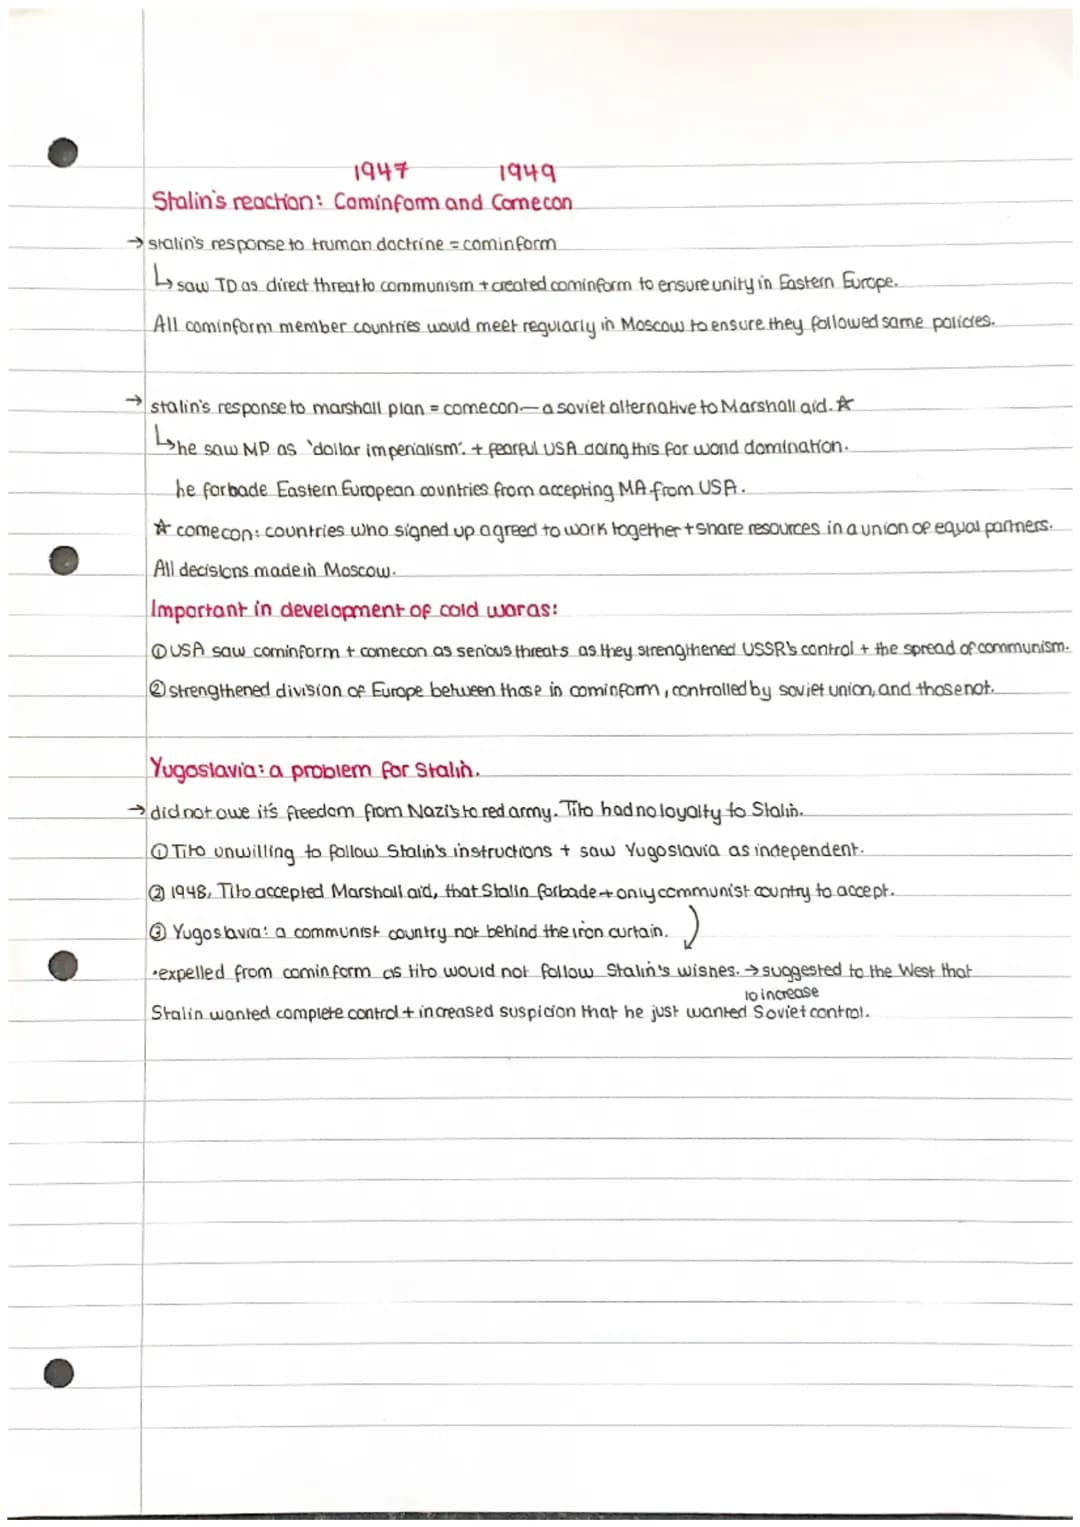 1947 1949
Stalin's reaction: Cominform and Comecon
→ stalin's response to truman doctrine = cominform
↳ saw TD as direct threat to communism + created cominform to ensure unity in Eastern Europe.
All cominform member countries would meet regularly in Moscow to ensure they followed same policies.
→ stalin's response to marshall plan = comecon — a soviet alternative to Marshall aid. ☆
↳ he saw MP as 'dollar imperialism'. + fearful USA doing this for world domination.
he forbade Eastern European countries from accepting MA from USA.
☆ comecon: countries who signed up agreed to work together + share resources in a union of equal partners.
All decisions made in Moscow.
Important in development of cold war as:
① USA saw cominform + comecon as serious threats as they strengthened USSR's control + the spread of communism.
② strengthened division of Europe between those in cominform, controlled by soviet union, and those not.
Yugoslavia: a problem for Stalin.
→ did not owe it's freedom from Nazi's to red army. Tito had no loyalty to Stalin.
① Tito unwilling to follow Stalin's instructions + saw Yugoslavia as independent.
② 1948, Tito accepted Marshall aid, that Stalin forbade + only communist country to accept.
③ Yugoslavia: a communist country not behind the iron curtain.
•expelled from cominform as tito would not follow Stalin's wishes. → suggested to the West that
to increase
Stalin wanted complete control + increased suspicion that he just wanted Soviet control.